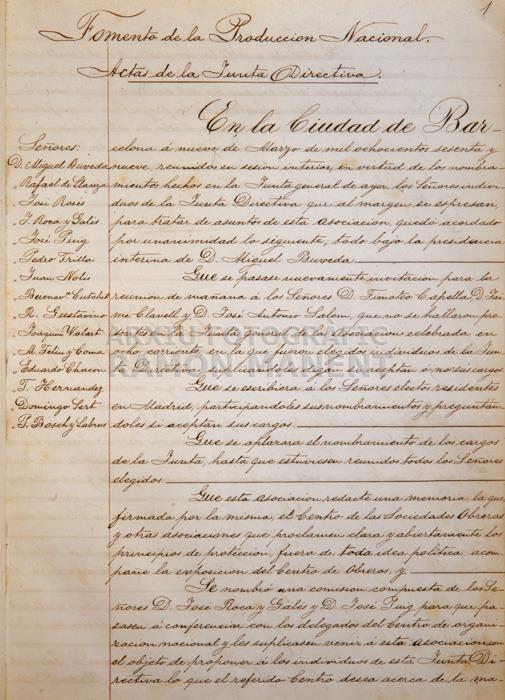 1
Fomento de la Produccion Nacional.
Actas de la Junta Directiva.
En la Ciudad de Bar-
Señores:
D. Miguel Buveda
" Rafael de
" José Rosés
" J. Roca y Galés
" José Puig
" Pedro Trilla
" Juan Noles
" R. Gustavino
" Joaquin
" M. Feliu y Coma
" Eduardo Chacon
" T. Hernandez
" Domingo Sert
" P. Bosch y Labrus
celona á nueve de Marzo de mil ochocientos sesenta y
nueve, reunidos en sesion interina, en virtud de los nombra-
mientos hechos en la Junta general de ayer, los Señores indivi-
duos de la Junta Directiva que al margen se espresan,
para tratar de asuntos de esta asociacion, quedó acordado
por unanimidad lo siguiente; todo bajo la presidencia
interina de D. Miguel Buveda.
Que se pasase nuevamente invitacion para la
reunion de mañana á los Señores D. Timoteo Capella, D. Jai-
me Clavell y D. José Antonio Salom, que no se hallaron pre-
sentes en la Junta general de la Asociacion celebrada en
ocho del corriente, en la que fueron elegidos individuos de la Jun-
ta Directiva, suplicandoles digan si aceptan ó no sus cargos.
Que se escribiera á los Señores electos residentes
en Madrid, participandoles sus nombramientos y preguntan-
doles si aceptan sus cargos.
Que se aplazara el nombramiento de los cargos
de la Junta, hasta que estuviesen reunidos todos los Señores
elegidos.
Que esta asociacion redacte una memoria, la que
firmada por la misma, el Centro de las Sociedades Obreras
y otras asociaciones que proclamen clara y abiertamente los
principios de proteccion, fuera de toda idea politica, acom-
pañe la exposicion del Centro de Obreros, y
Se nombró una comision compuesta de los Se-
ñores D. José Roca y Galés y D. José Puig para que pa-
sasen á conferenciar con los delegados del Centro de organi-
zacion nacional y les suplicasen venir á esta asociacion con
el objeto de proponer á los individuos de esta Junta Di-
rectiva lo que el referido Centro desea acerca de la ma-
ARXIU FOTOGRÀFIC
RAMON MANENT